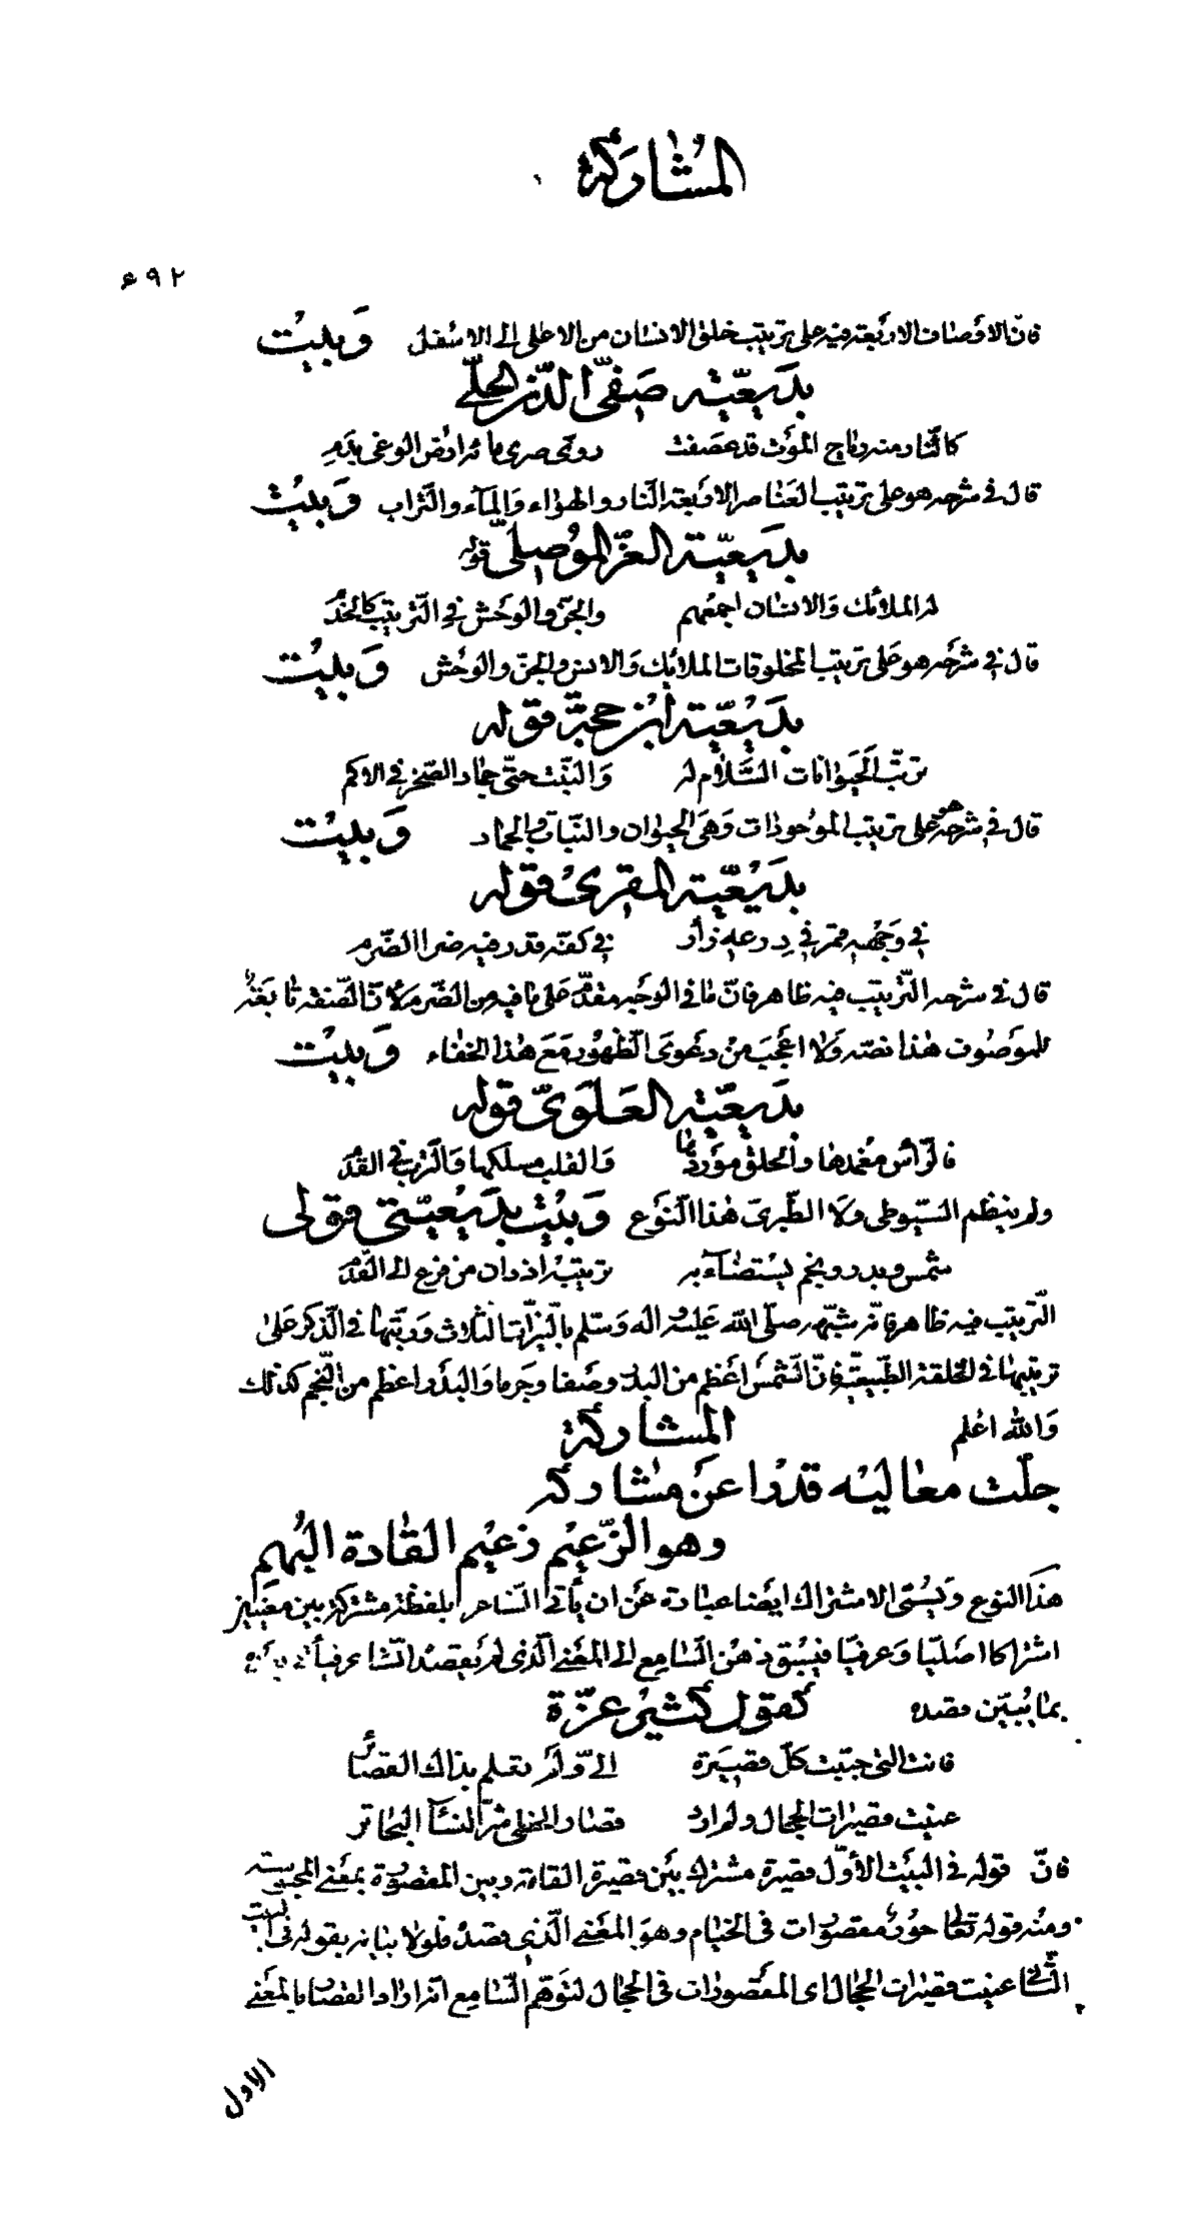 المشاركة
۶۹۲
فانّ الاوصاف الاربعة فيه على ترتيب خلق الانسان من الاعلى الى الاسفل وبيت
بديعيّة صفيّ الدّين الحلّي
كالنّار منه رياح الموت قد عصفت روّى صرى مائه ارض الوغى بدم
قال في شرحه هو على ترتيب العناصر الاربعة النار والهواء والمآء والتّراب وبيت
بديعيّة العزّ الموصليّ قوله
له الملائك والانسان اجمعهم والجنّ والوحش في التّرتيب كالخدم
قال في شرحه هو على ترتيب المخلوقات الملائك والانس والجنّ والوحش وبيت
بديعيّة ابن حجّة قوله
ترتّب الحيوانات السّلام له والنّبت حتّى جماد الصّخر في الاكم
قال في شرحه هو على ترتيب الموجودات وهي الحيوان والنّبات والجماد وبيت
بديعيّة المقرى قوله
في وجهه قمر في درعه زأر في كفّه قدر فيه ضرا الضّرم
قال في شرحه التّرتيب فيه ظاهر فانّ ما في الوجه مقدّم على ما فيه من الضّرم لانّ الصّفة تابعة
للموصوف هذا نصّه ولا اعجب من دعوى الظّهور مع هذا الخفاء وبيت
بديعيّة العلويّ قوله
فالرّاس مغمدها والحلق موردها والقلب مسلكها والتّرب في القدم
ولم ينظم السّيوطى ولا الطّبرى هذا النّوع وبيت بديعيّتى قولى
شمس وبدر ونجم يستضآء به ترتيبه ازدان من فرع الى القدم
التّرتيب فيه ظاهر فانّه شبّهه صلّى الله عليه واله وسلّم بالنّيّرات الثلاث ورتّبها في الذّكر على
ترتيبها في الخلقة الطّبيعيّة فانّ الشّمس اعظم من البدر وصفا وجرما والبدر اعظم من النّجم كذلك
والله اعلم المشاركة
جلّت معاليه قدرا عن مشاركة
وهو الزّعيم زعيم القادة البهم
هذا النوع ويسمّى الاشتراك ايضا عبارة عن ان يأتى الشّاعر بلفظة مشتركة بين معنيين
اشتراكا اصليّا وعرفيّا فيسبق ذهن السّامع الى المعنى الّذى لم يقصده الشّاعر فيأتى
بما يبيّن قصده كقول كثير عزّة
فانت التى حبّبت كلّ قصيرة الىّ ولم تعلم بذاك القصائر
عنيت قصيرات الحجال ولم ارد قصار الخطى شرّ النسآ البحاتر
فانّ قوله في البيت الأوّل قصيرة مشترك بين قصيرة القامة وبين المقصورة بمعنى المحبوسة
ومنه قوله تعالى حور مقصورات في الخيام وهو المعنى الّذي قصده فلولا بيانه بقوله في البيت
الثّانى عنيت قصيرات الحجال اى المقصورات في الحجال لتوهّم السّامع انّه اراد القصار بالمعنى
الاول